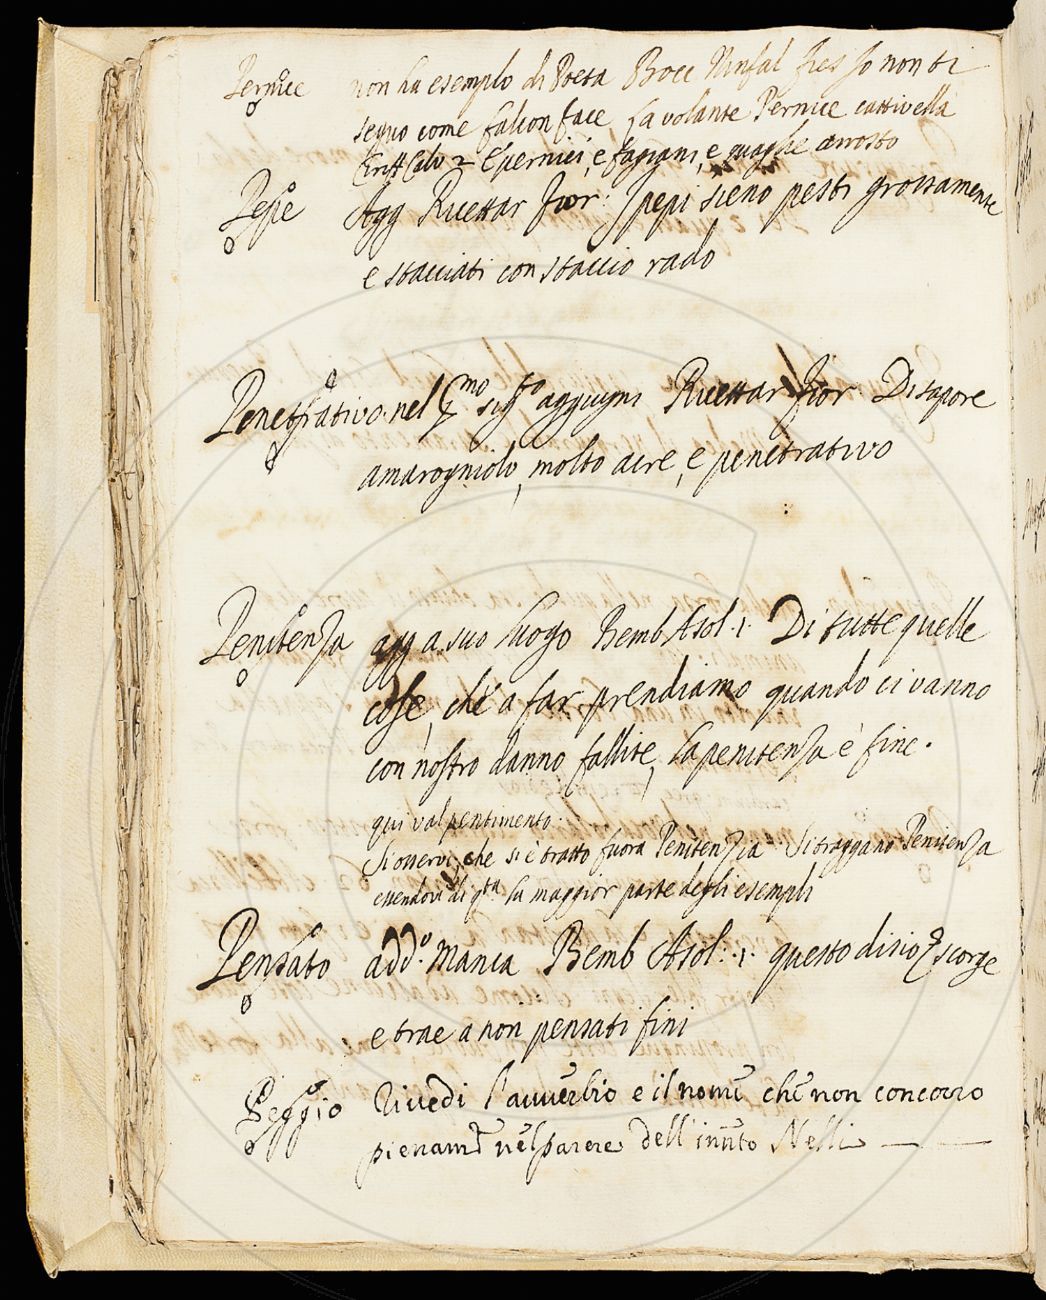 Pernice non ha esemplo di Poeta Bocc Ninfal Fies Io non ti
seguo come falcon face la volante Pernice cattivella
Ciriff Calv 2 E pernici, e fagiani, e quaglie arrosto
Pepe Agg Ricettar Fior: I pepi sieno pesti grossamente
e stacciati con staccio rado
Penetrativo. nel §mo sigto aggiugni Ricettar Fior Di sapore
amarogniolo, molto acre, e penetrativo
Penitenza agg a suo luogo Bemb Asol .1. Di tutte quelle
cose, che a far prendiamo quando ci vanno
con nostro danno fallite, la penitenza è fine.
qui val pentimento.
Si osservi, che si è tratto fuora Penitenzia Si traggano Penitenza
essendovi di qta la maggior parte degli esempli
Pensato addo. manca Bemb Asol: .1. questo disio scorge
e trae a non pensati fini
Peggio Rivedi l'avverbio e il nome che non concorro
pienamte nel parere dell' innto Nelli